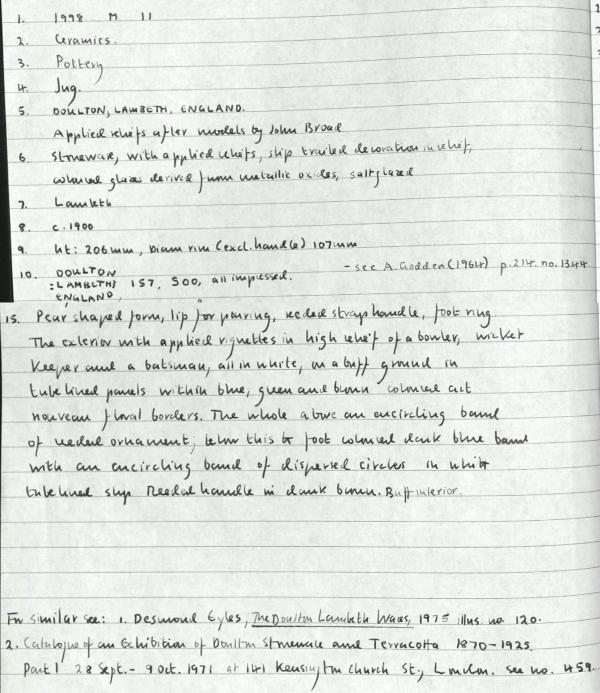 1. 1998 M 11
2. Ceramics.
3. Pottery
4. Jug.
5. DOULTON, LAMBETH, ENGLAND.
Applied reliefs after models by John Broad
6. Stoneware, with applied reliefs, slip trailed decoration in relief,
coloured glazes derived from metallic oxides, saltglazed
7. Lambeth
8. c. 1900
9. ht: 206mm, Diam rim (excl. handle) 107mm
- see A. Godden (1964) p. 214. no. 1344
10. DOULTON
: LAMBETH: 157, 500, all impressed.
ENGLAND,
15. Pear shaped form, lip for pouring, reeded strap handle, foot ring
The exterior with applied vignettes in high relief of a bowler, wicket
keeper and a batsman, all in white, on a buff ground in
tube lined panels within blue, green and brown coloured art
nouveau floral borders. The whole above an encircling band
of reeded ornament; below this to foot coloured dark blue band
with an encircling band of dispersed circles in white
tube lined slip Reeded handle in dark brown. Buff interior.
For similar see: 1. Desmond Eyles, The Doulton Lambeth Wares, 1975 illus. no. 120.
2. Catalogue of an Exhibition of Doulton Stoneware and Terracotta 1870-1925,
Part 1 28 Sept. - 9 Oct. 1971 at 141 Kensington Church St., London. see no. 459.